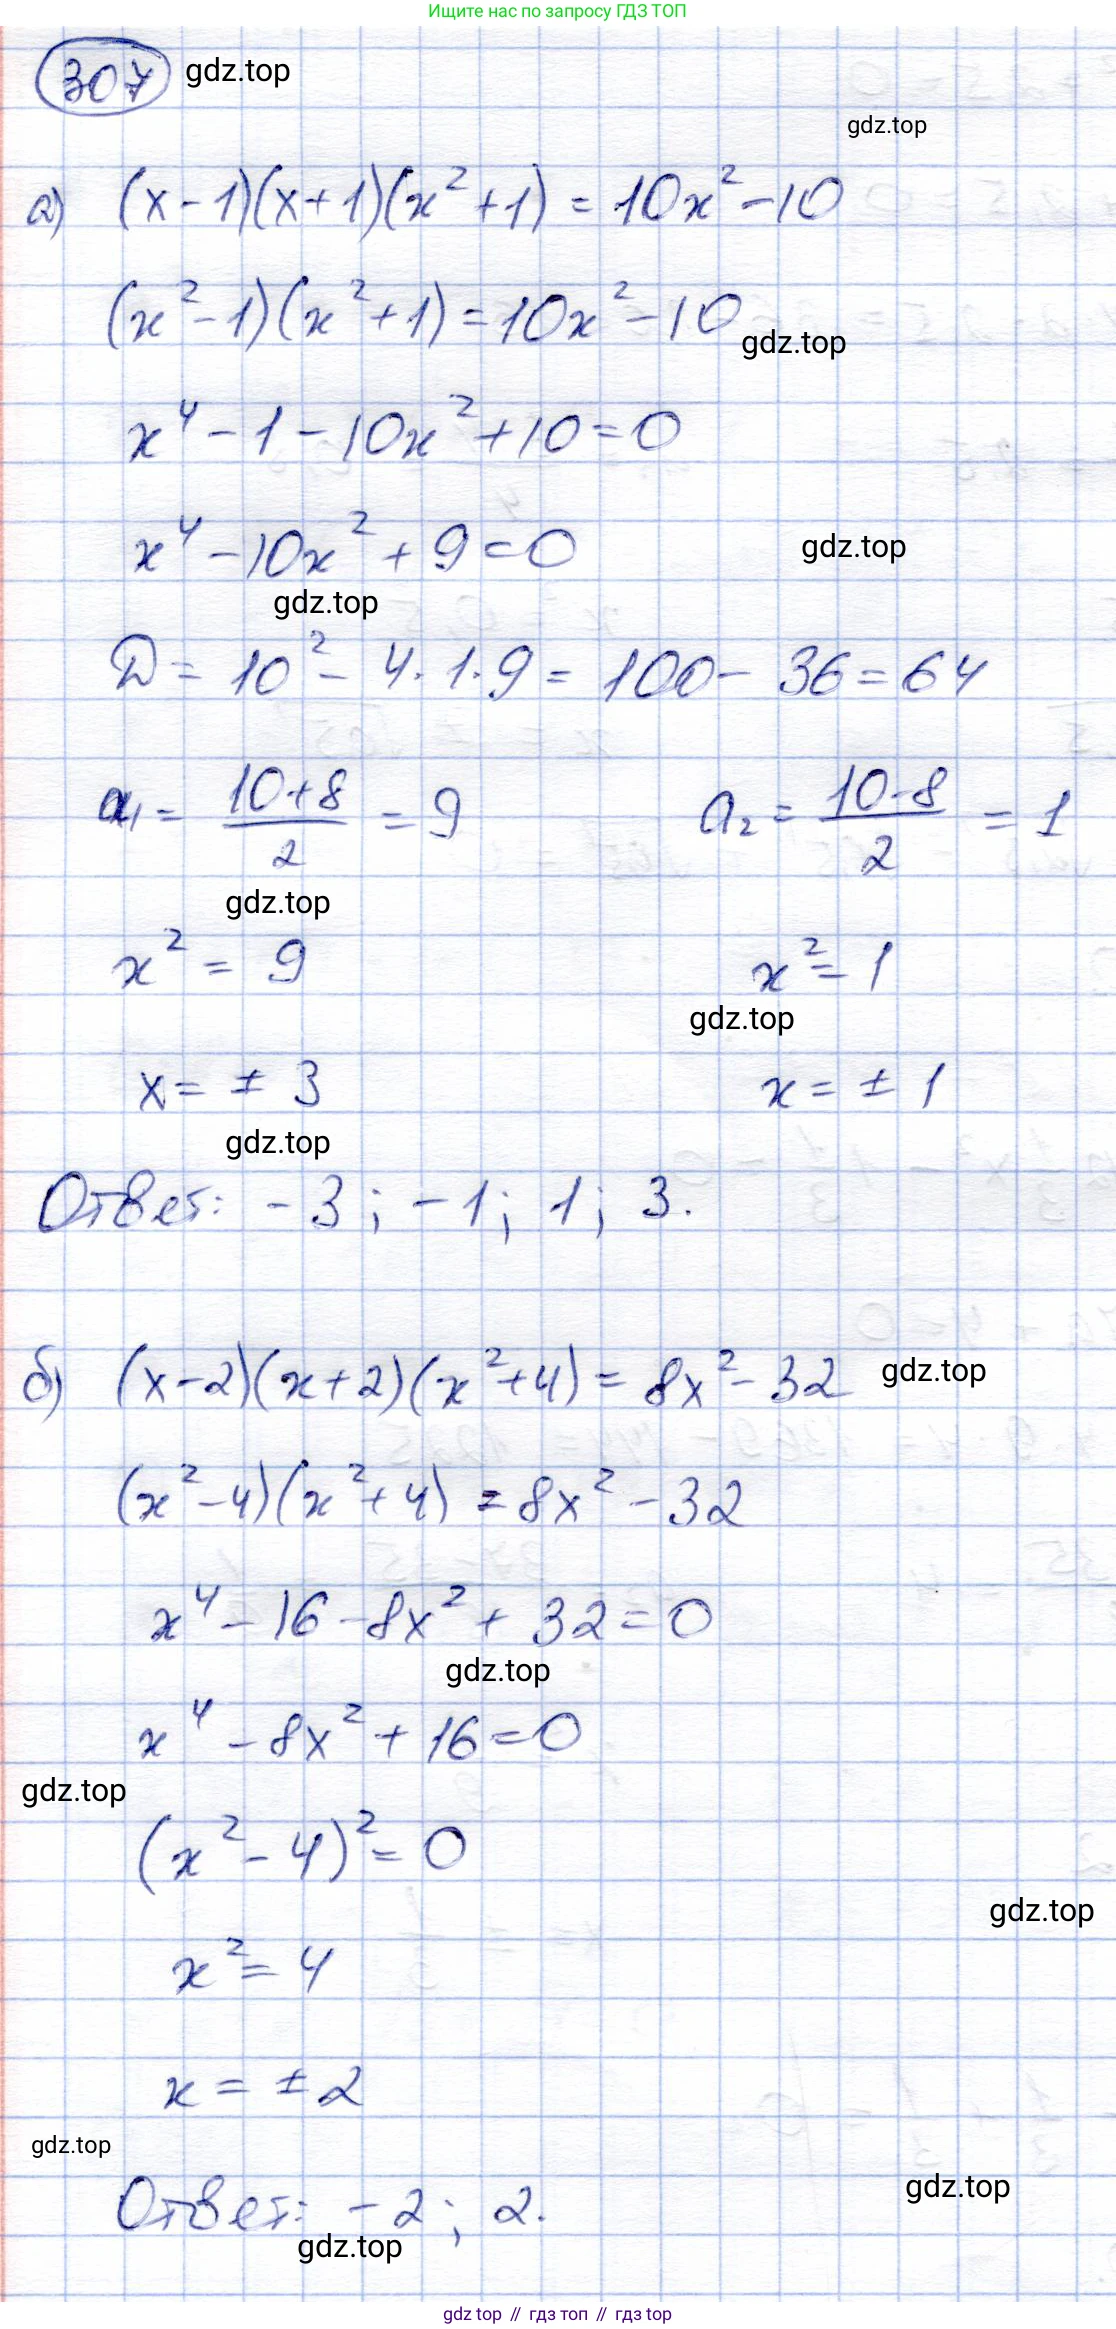 Ищите нас по запросу ГДЗ ТОП
307 gdz.top
gdz.top
а) (x-1)(x+1)(x²+1)=10x²-10
(x²-1)(x²+1)=10x²-10
gdz.top
x⁴-1-10x²+10=0
x⁴-10x²+9=0 gdz.top
gdz.top
D=10²-4·1·9=100-36=64
a₁=(10+8)/2=9 a₂=(10-8)/2=1
gdz.top
x²=9 x²=1
gdz.top
x=±3 x=±1
gdz.top
Ответ: -3; -1; 1; 3.
б) (x-2)(x+2)(x²+4)=8x²-32 gdz.top
(x²-4)(x²+4)=8x²-32
x⁴-16-8x²+32=0
gdz.top
x⁴-8x²+16=0
gdz.top
(x²-4)²=0
gdz.top
x²=4
x=±2
gdz.top
gdz.top
Ответ: -2; 2.
gdz.top
gdz top // гдз топ // гдз top